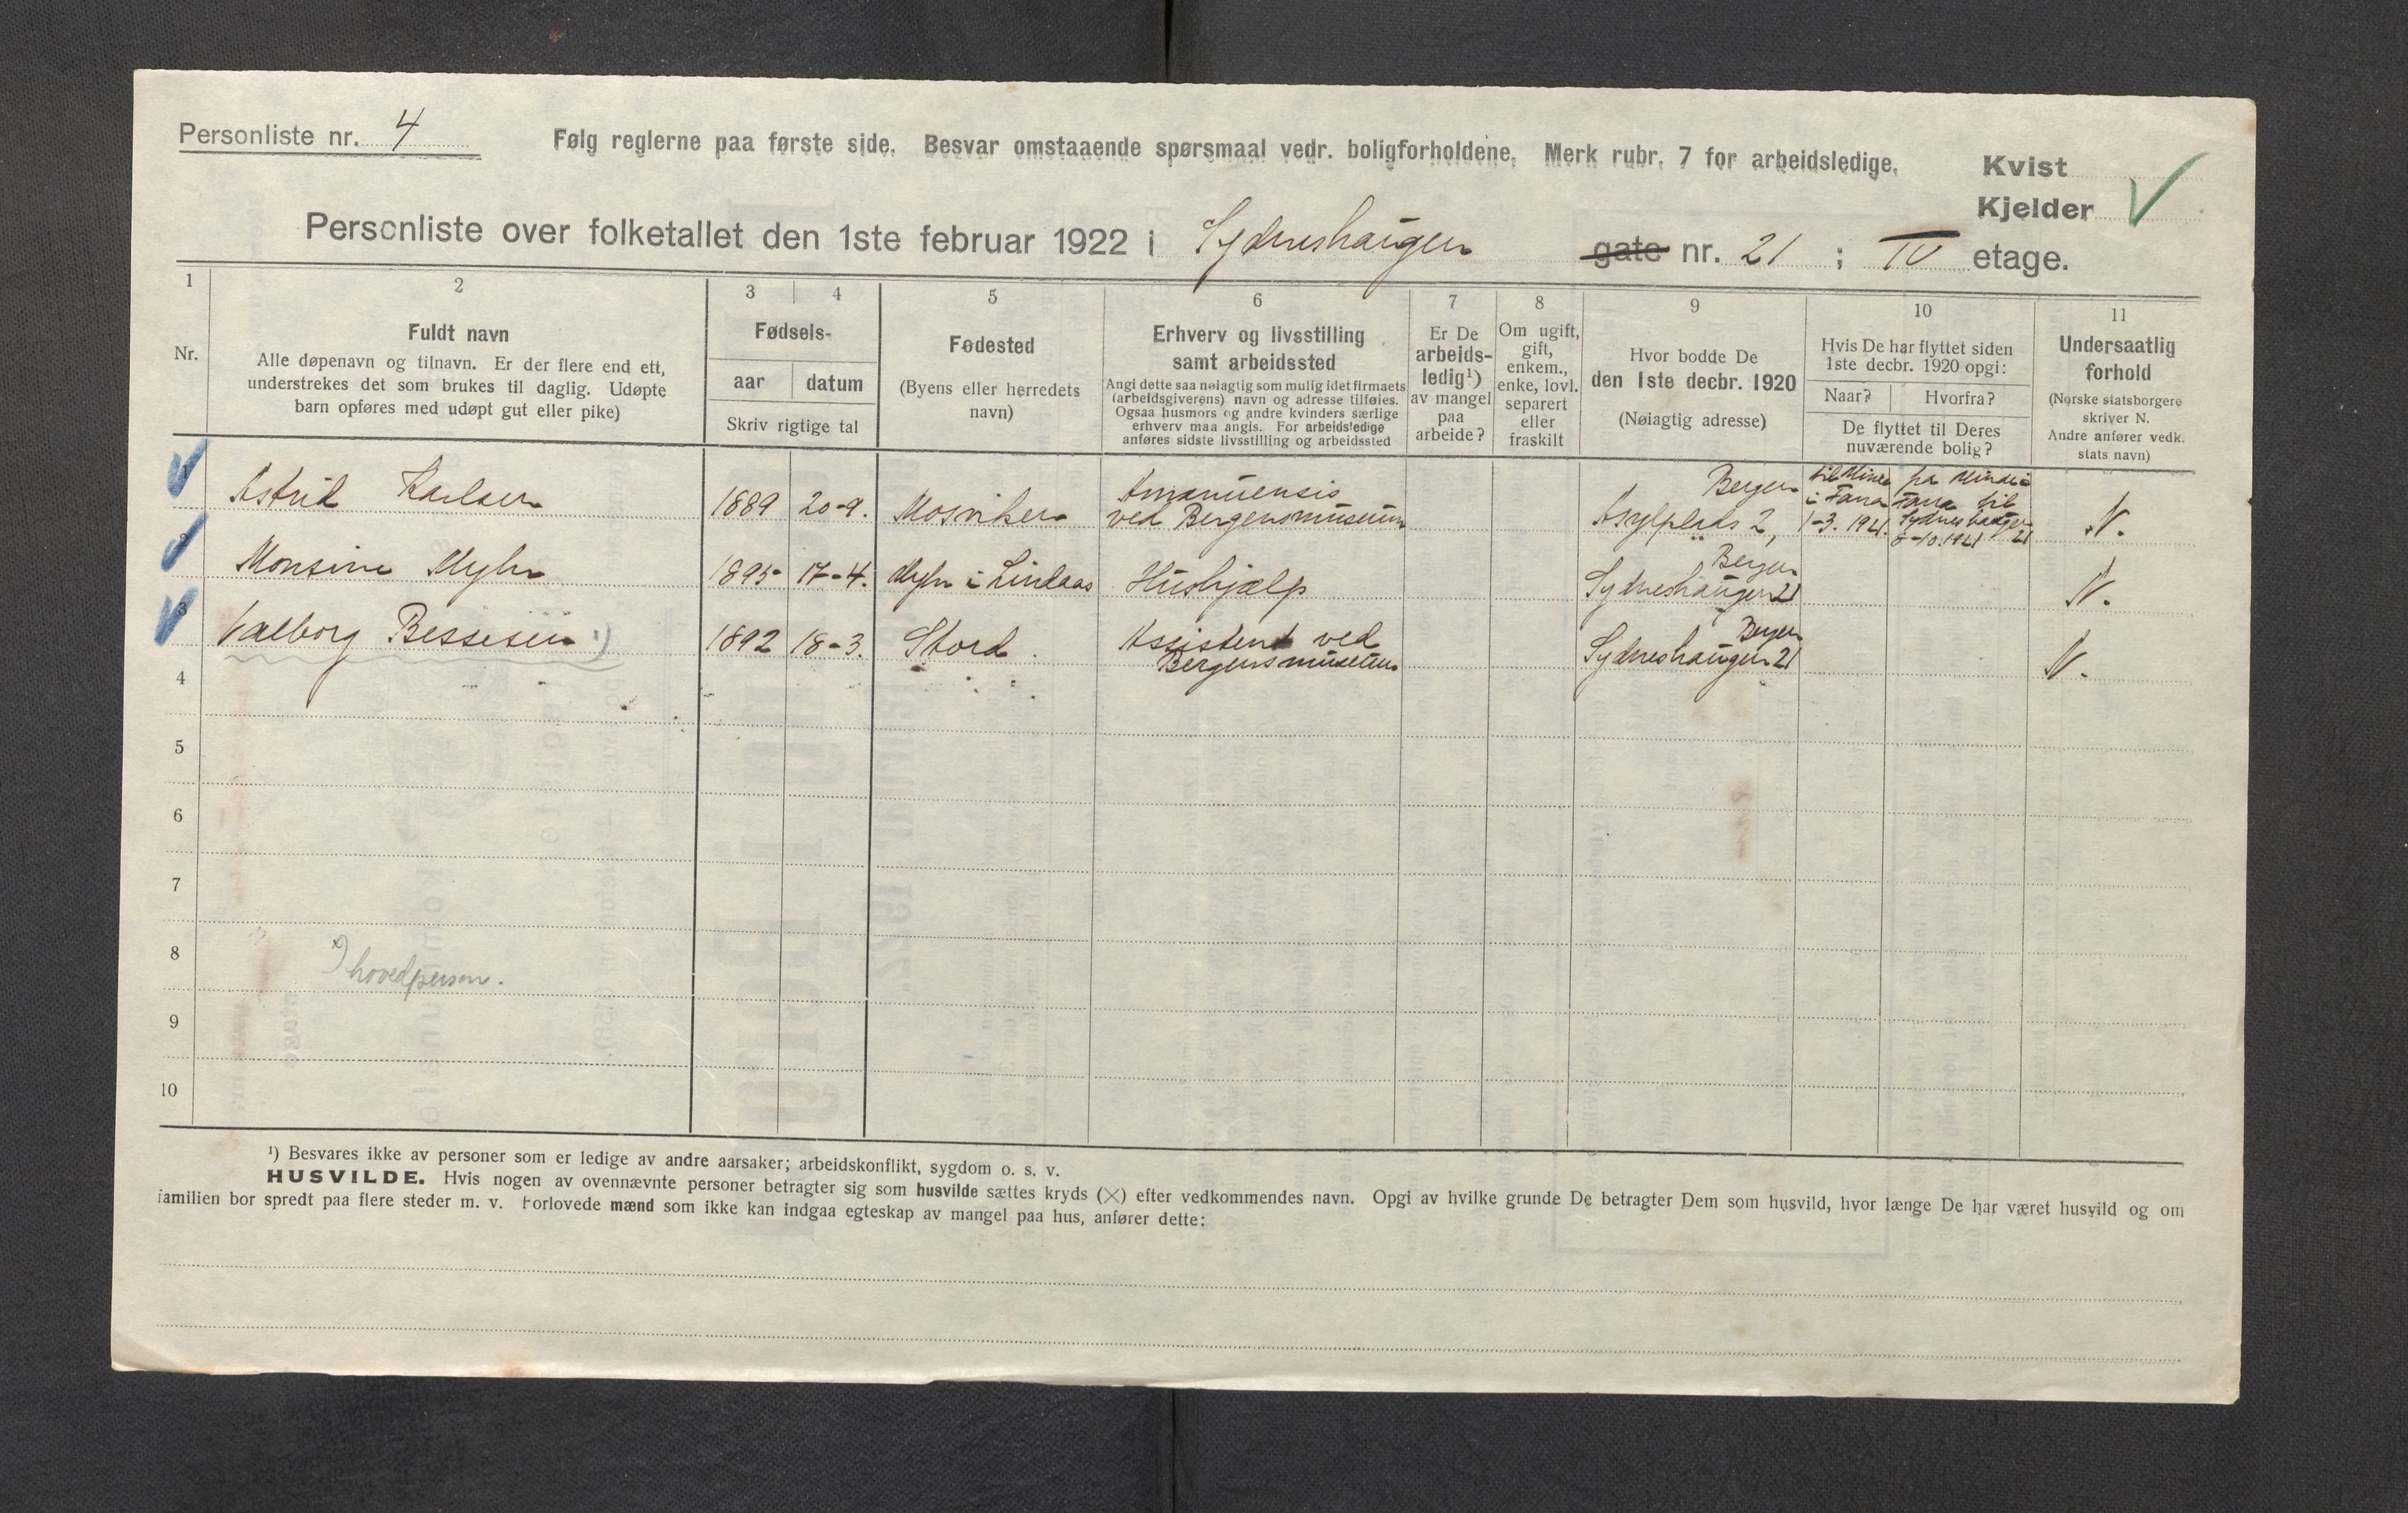 Personliste nr. 4
Følg reglerne paa første side. Besvar omstaaende spørsmaal vedr. boligforholdene. Merk rubr. 7 for arbeidsledige.
Kvist
Kjelder
Personliste over folketallet den 1ste februar 1922 i Sydneshaugen gate nr. 21 ; IV etage.
1 2 3 4 5 6 7 8 9 10 11
Nr.
Fuldt navn
Alle døpenavn og tilnavn. Er der flere end ett,
understrekes det som brukes til daglig. Udøpte
barn opføres med udøpt gut eller pike)
Fødsels-
aar datum
Skriv rigtige tal
Fødested
(Byens eller herredets
navn)
Erhverv og livsstilling
samt arbeidssted
Angi dette saa nøiagtig som mulig idet firmaets
(arbeidsgiverens) navn og adresse tilføies.
Ogsaa husmors og andre kvinders særlige
erhverv maa angis. For arbeidsledige
anføres sidste livsstilling og arbeidssted
Er De
arbeids-
ledig¹)
av mangel
paa
arbeide?
Om ugift,
gift,
enkem.,
enke, lovl.
separert
eller
fraskilt
Hvor bodde De
den 1ste decbr. 1920
(Nøiagtig adresse)
Hvis De har flyttet siden
1ste decbr. 1920 opgi:
Naar? Hvorfra?
De flyttet til Deres
nuværende bolig?
Undersaatlig
forhold
(Norske statsborgere
skriver N.
Andre anfører vedk.
stats navn)
1 Astrid Karlsen 1889 20-9. Mosviken Amanuensis
ved Bergensmuseum
Bergen
Asylplads 2,
til Minde
i Fana
1-3. 1921.
fra Minde i
Fana til
Sydneshaugen
8-10.1921 21
N.
2 Monsine Myhr 1895 17-4. Myhr i Lindaas Hushjælp
Bergen
Sydneshaugen 21
N.
3 Valborg Bessesen 1) 1892 18-3. Stord. Assistent ved
Bergensmuseum
Bergen
Sydneshaugen 21
N.
4
5
6
7
8
hovedperson.
9
10
¹) Besvares ikke av personer som er ledige av andre aarsaker; arbeidskonflikt, sygdom o. s. v.
HUSVILDE. Hvis nogen av ovennævnte personer betragter sig som husvilde sættes kryds (×) efter vedkommendes navn. Opgi av hvilke grunde De betragter Dem som husvild, hvor længe De har været husvild og om
familien bor spredt paa flere steder m. v. Forlovede mænd som ikke kan indgaa egteskap av mangel paa hus, anfører dette: